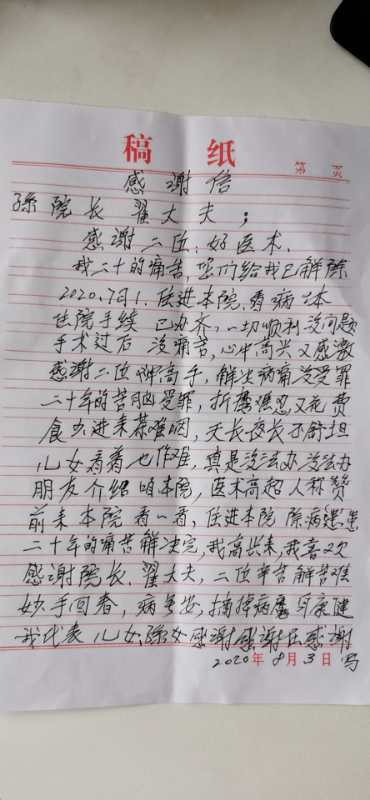 稿 纸
第 页
感谢信
孙院长翟大夫;
感谢二位,好医术,
我二十的痛苦,您们给我已解除
2020.7月1.住进本院,看病本
住院手续 已办齐,一切顺利没问题
手术过后 没痛苦,心中高兴又感激
感谢二位 高手,解决病痛没受罪
二十年的苦 受罪,折磨 忍又花费
食 进来 难咽,天长夜长不舒坦
儿女看着也作难,真是没法办没法办
朋友介绍 咱本院,医术高超人称赞
前来本院看一看,住进本院 除病患
二十年的痛苦解决完,我高兴来,我喜欢
感谢院长、翟大夫,二位辛苦解苦难
妙手回春,病 安,摘掉病磨 身康健
我代表儿女孙女感谢感谢在感谢
2020年8月3日写